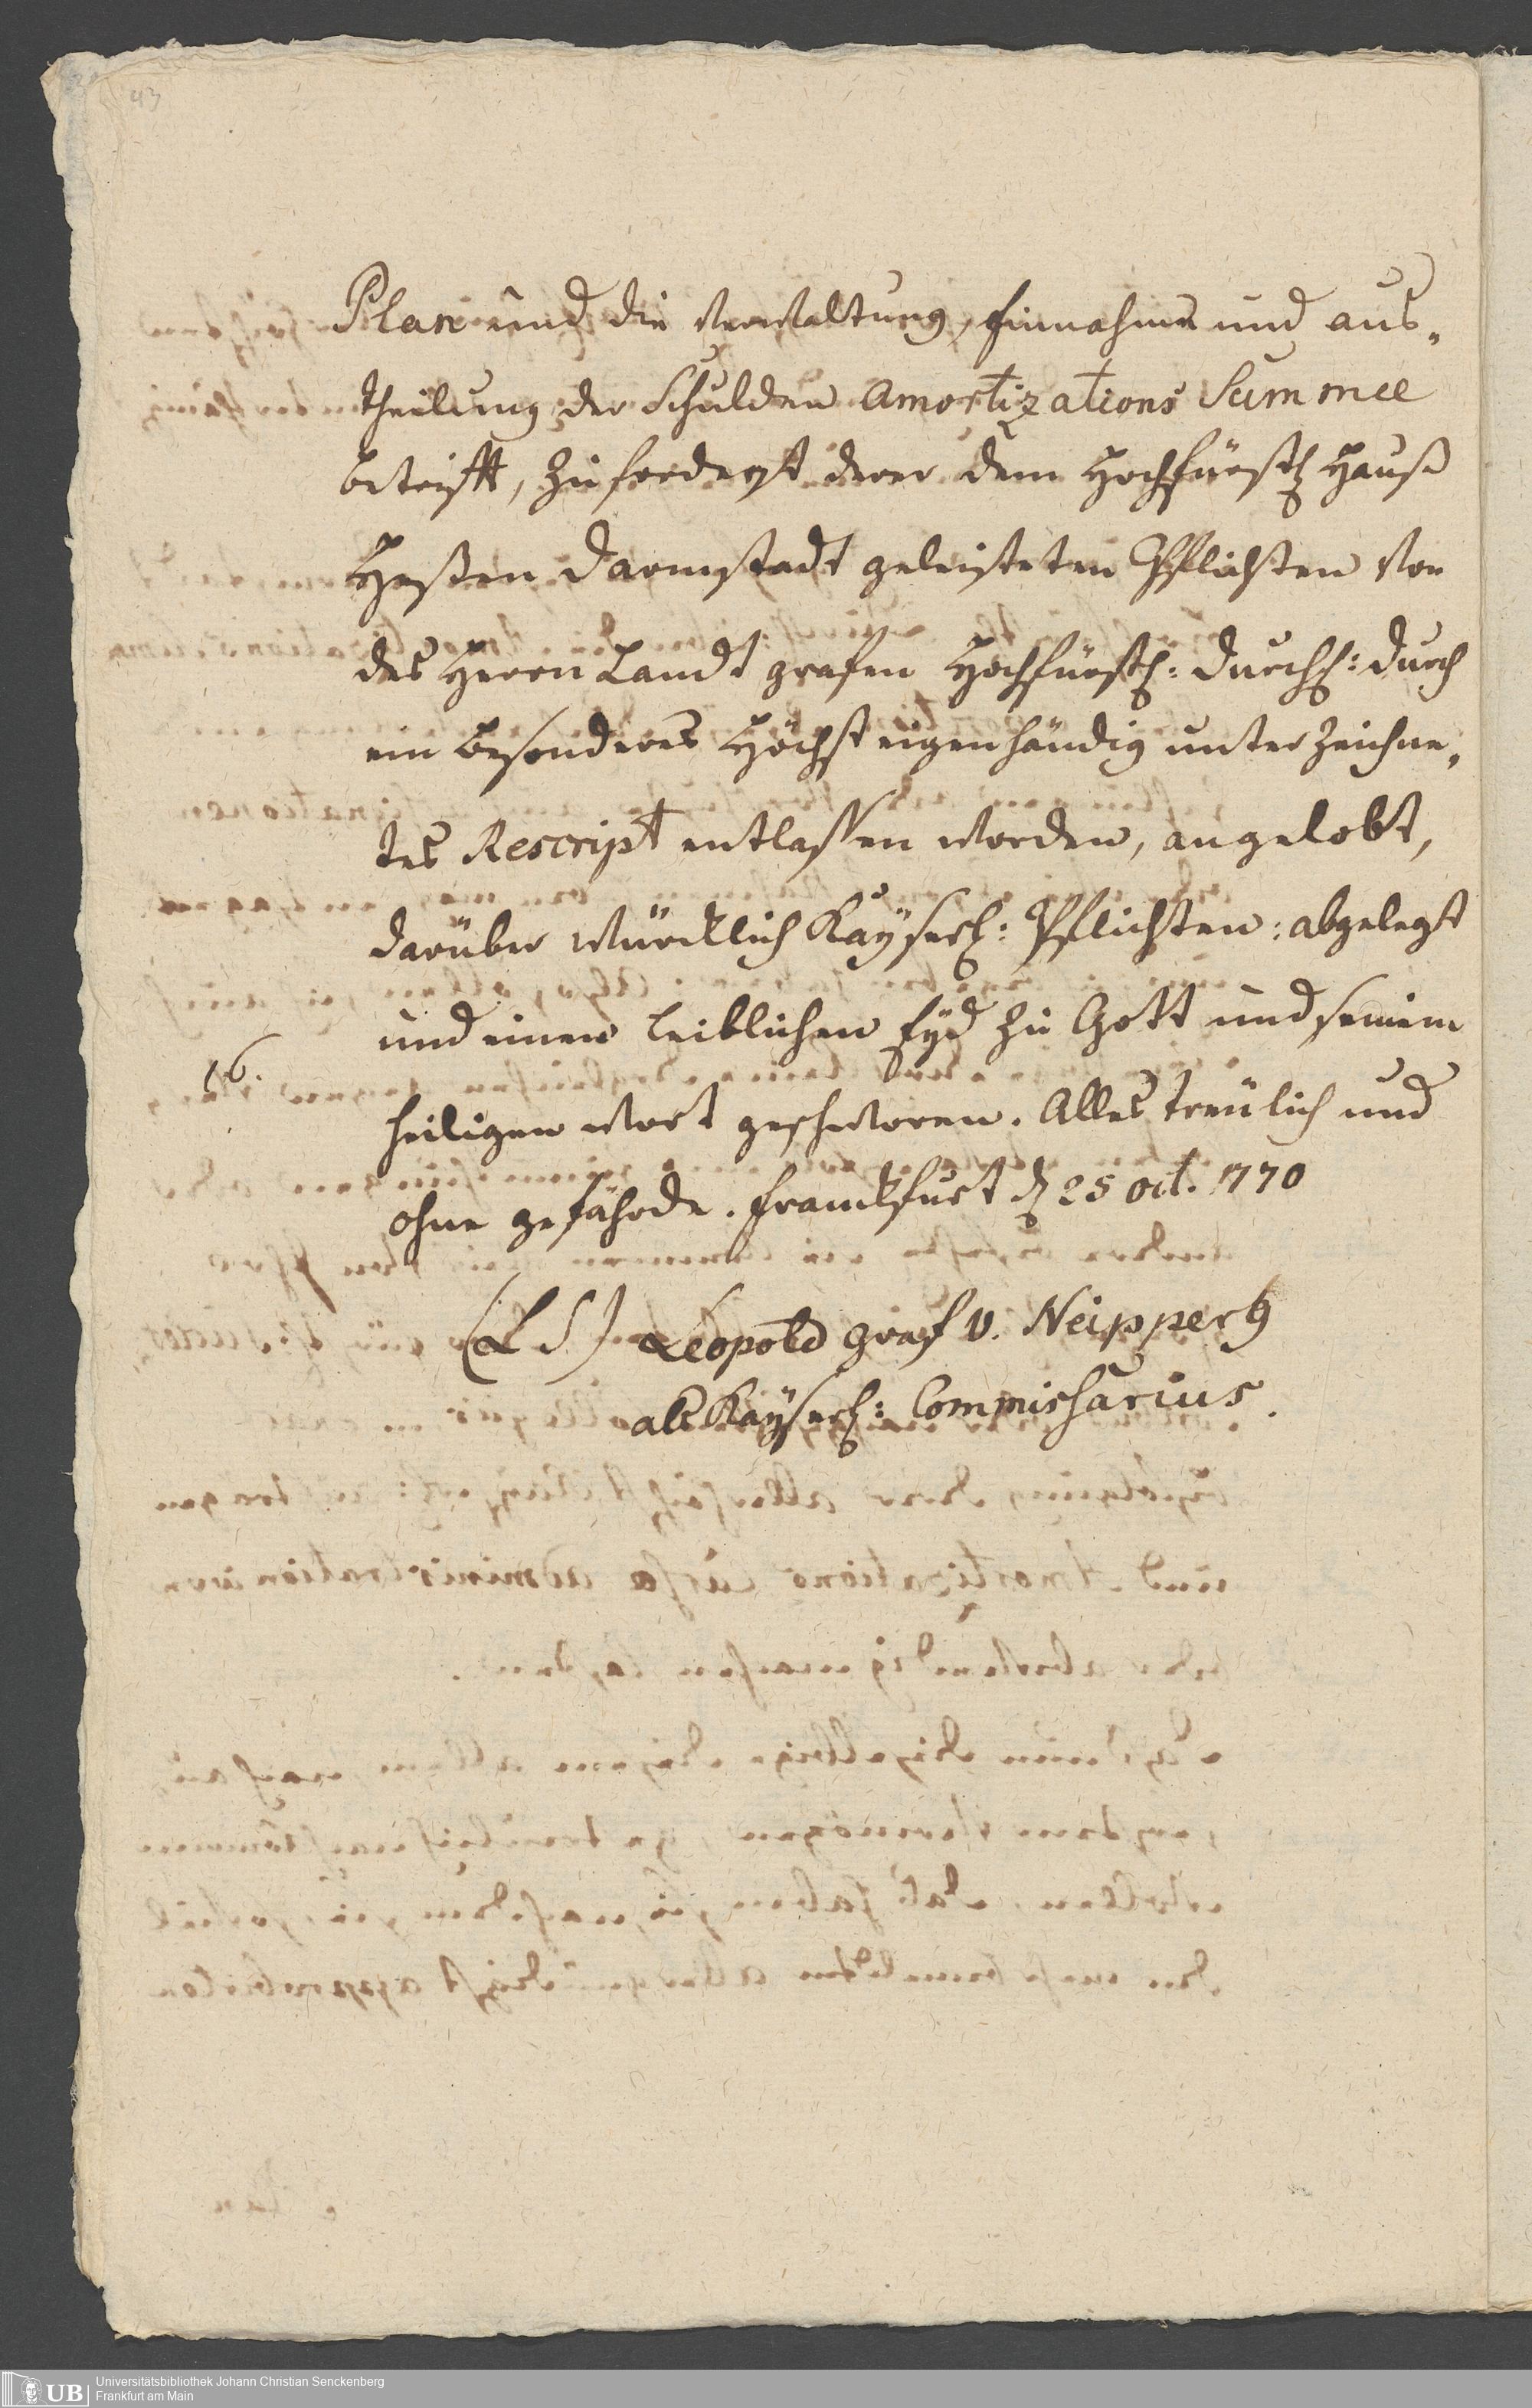 43
Plan und die Verwaltung, Einnahme und aus-
theilung der Schulden Amortizations Summee
betrifft, zuforderst derer dem Hochfürstl Hauß
Heßen Darmstadt geleisteten Pflichten von
des Herrn Landt grafen Hochfürstl: Durchl: durch
ein besonderes Höchst eigenhändig unterzeichne-
tes Rescript entlaßen worden, angelobt,
darüber würcklich Kayserl: Pflichten: abgelegt
und einen leiblichen Eyd zu Gott und seinem
16.
heiligen Wort geschworen. Alles treulich und
ohne gefährde. Franckfurt d 25 oct. 1770
(L S) Leopold graf v. Neipperg
als Kayserl: Commissarius.
UB Universitätsbibliothek Johann Christian Senckenberg
Frankfurt am Main